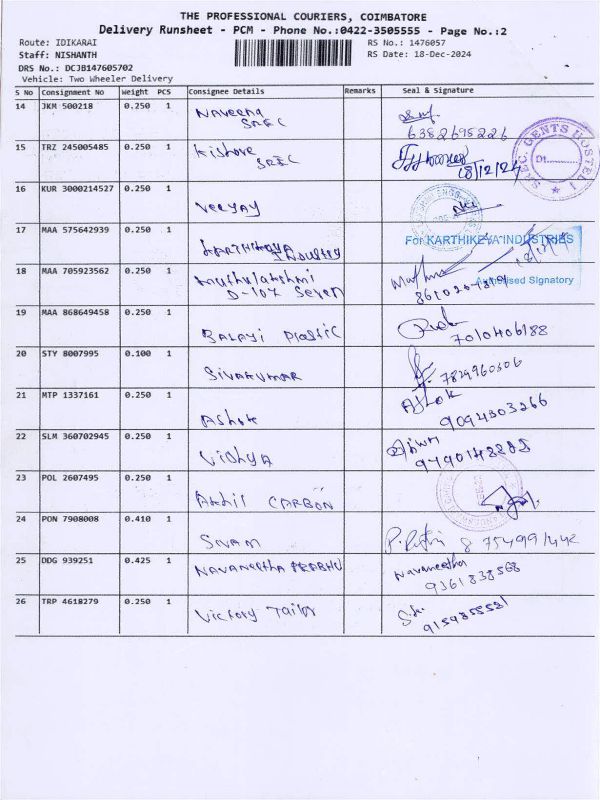 THE PROFESSIONAL COURIERS, COIMBATORE
Delivery Runsheet - PCM - Phone No.:0422-3505555 - Page No.:2
Route: IDIKARAI RS No.: 1476057
Staff: NISHANTH RS Date: 18-Dec-2024
DRS No.: DCJB147605702
Vehicle: Two Wheeler Delivery
S No Consignment No Weight PCS Consignee Details Remarks Seal & Signature
14 JKM 500218 0.250 1 Naveena
SREC
6382695226
15 TRZ 245005485 0.250 1 Kishore
SREC
18/12/24
SREC. GENTS HOSTEL 1
Dt.
16 KUR 3000214527 0.250 1 Veejay
17 MAA 575642939 0.250 1 KARTHIKEYA
INDUSTRY
For KARTHIKEYA INDUSTRIES
18 MAA 705923562 0.250 1 Muthulakshmi
D-107 Seven
Authorised Signatory
19 MAA 868649458 0.250 1 Balaji Plastic
7010406188
20 STY 8007995 0.100 1 SIVAKUMAR
7829960306
21 MTP 1337161 0.250 1 Ashok
Ashok
9094303266
22 SLM 360702945 0.250 1 Vidhya
9790148285
23 POL 2607495 0.250 1 Akhil CARBON
24 PON 7908008 0.410 1 Sivam
25 DDG 939251 0.425 1 NAVANEETHA PRABHU
Navaneetha
9361838568
26 TRP 4618279 0.250 1 Victory Tailor